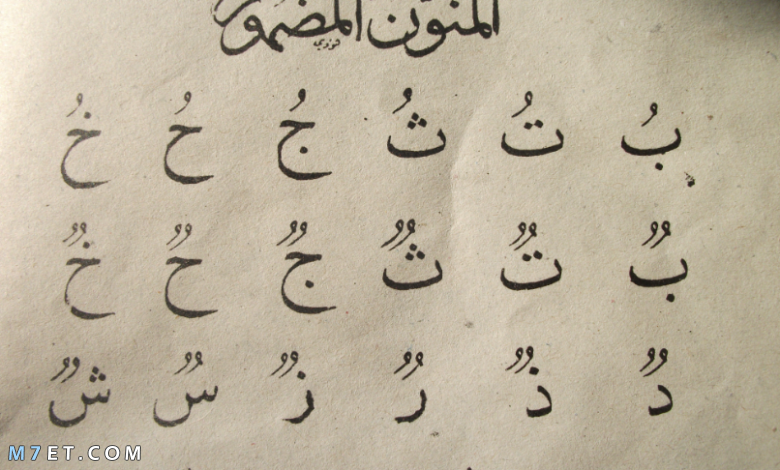 المنون المضموم
بُ تُ ثُ جُ حُ خُ
بٌ تٌ ثٌ جٌ حٌ خٌ
دٌ ذٌ رٌ زٌ سٌ شٌ
M7ET.COM